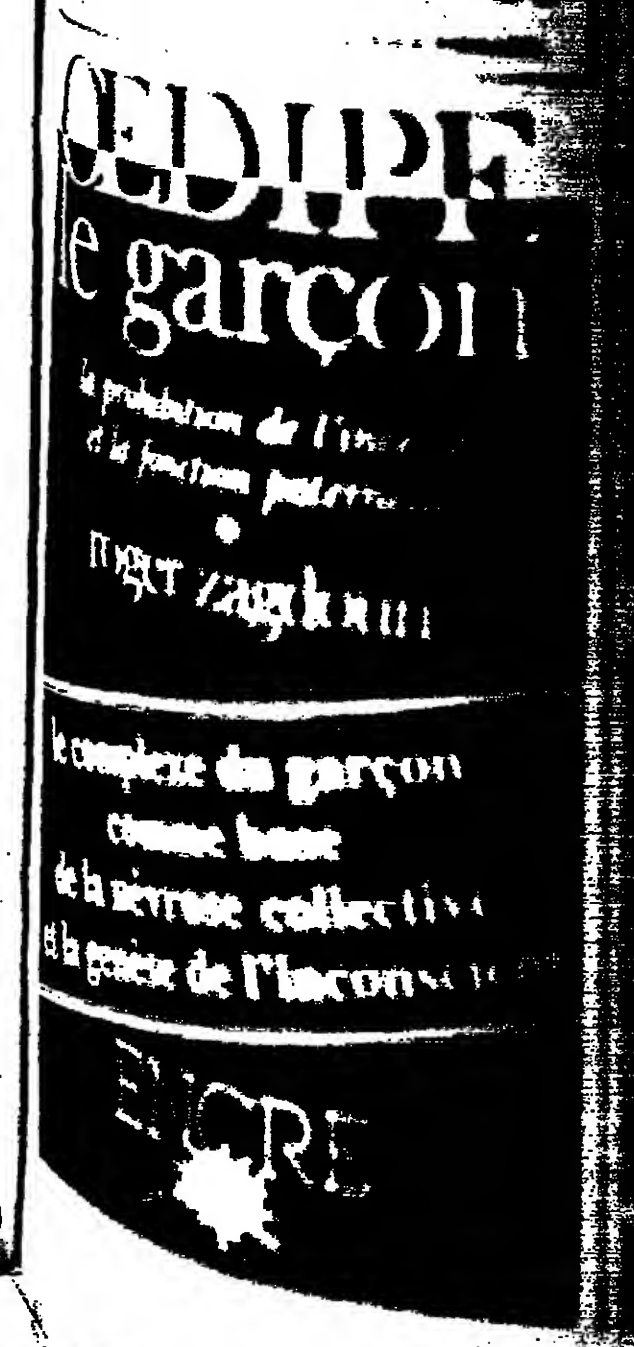 ŒDIPE
le garçon
la prohibition de l'
et la fonction
roger zagdoun
le complexe du garçon
comme base
de la névrose collective
et la genèse de l'Inconscient
ENCRE